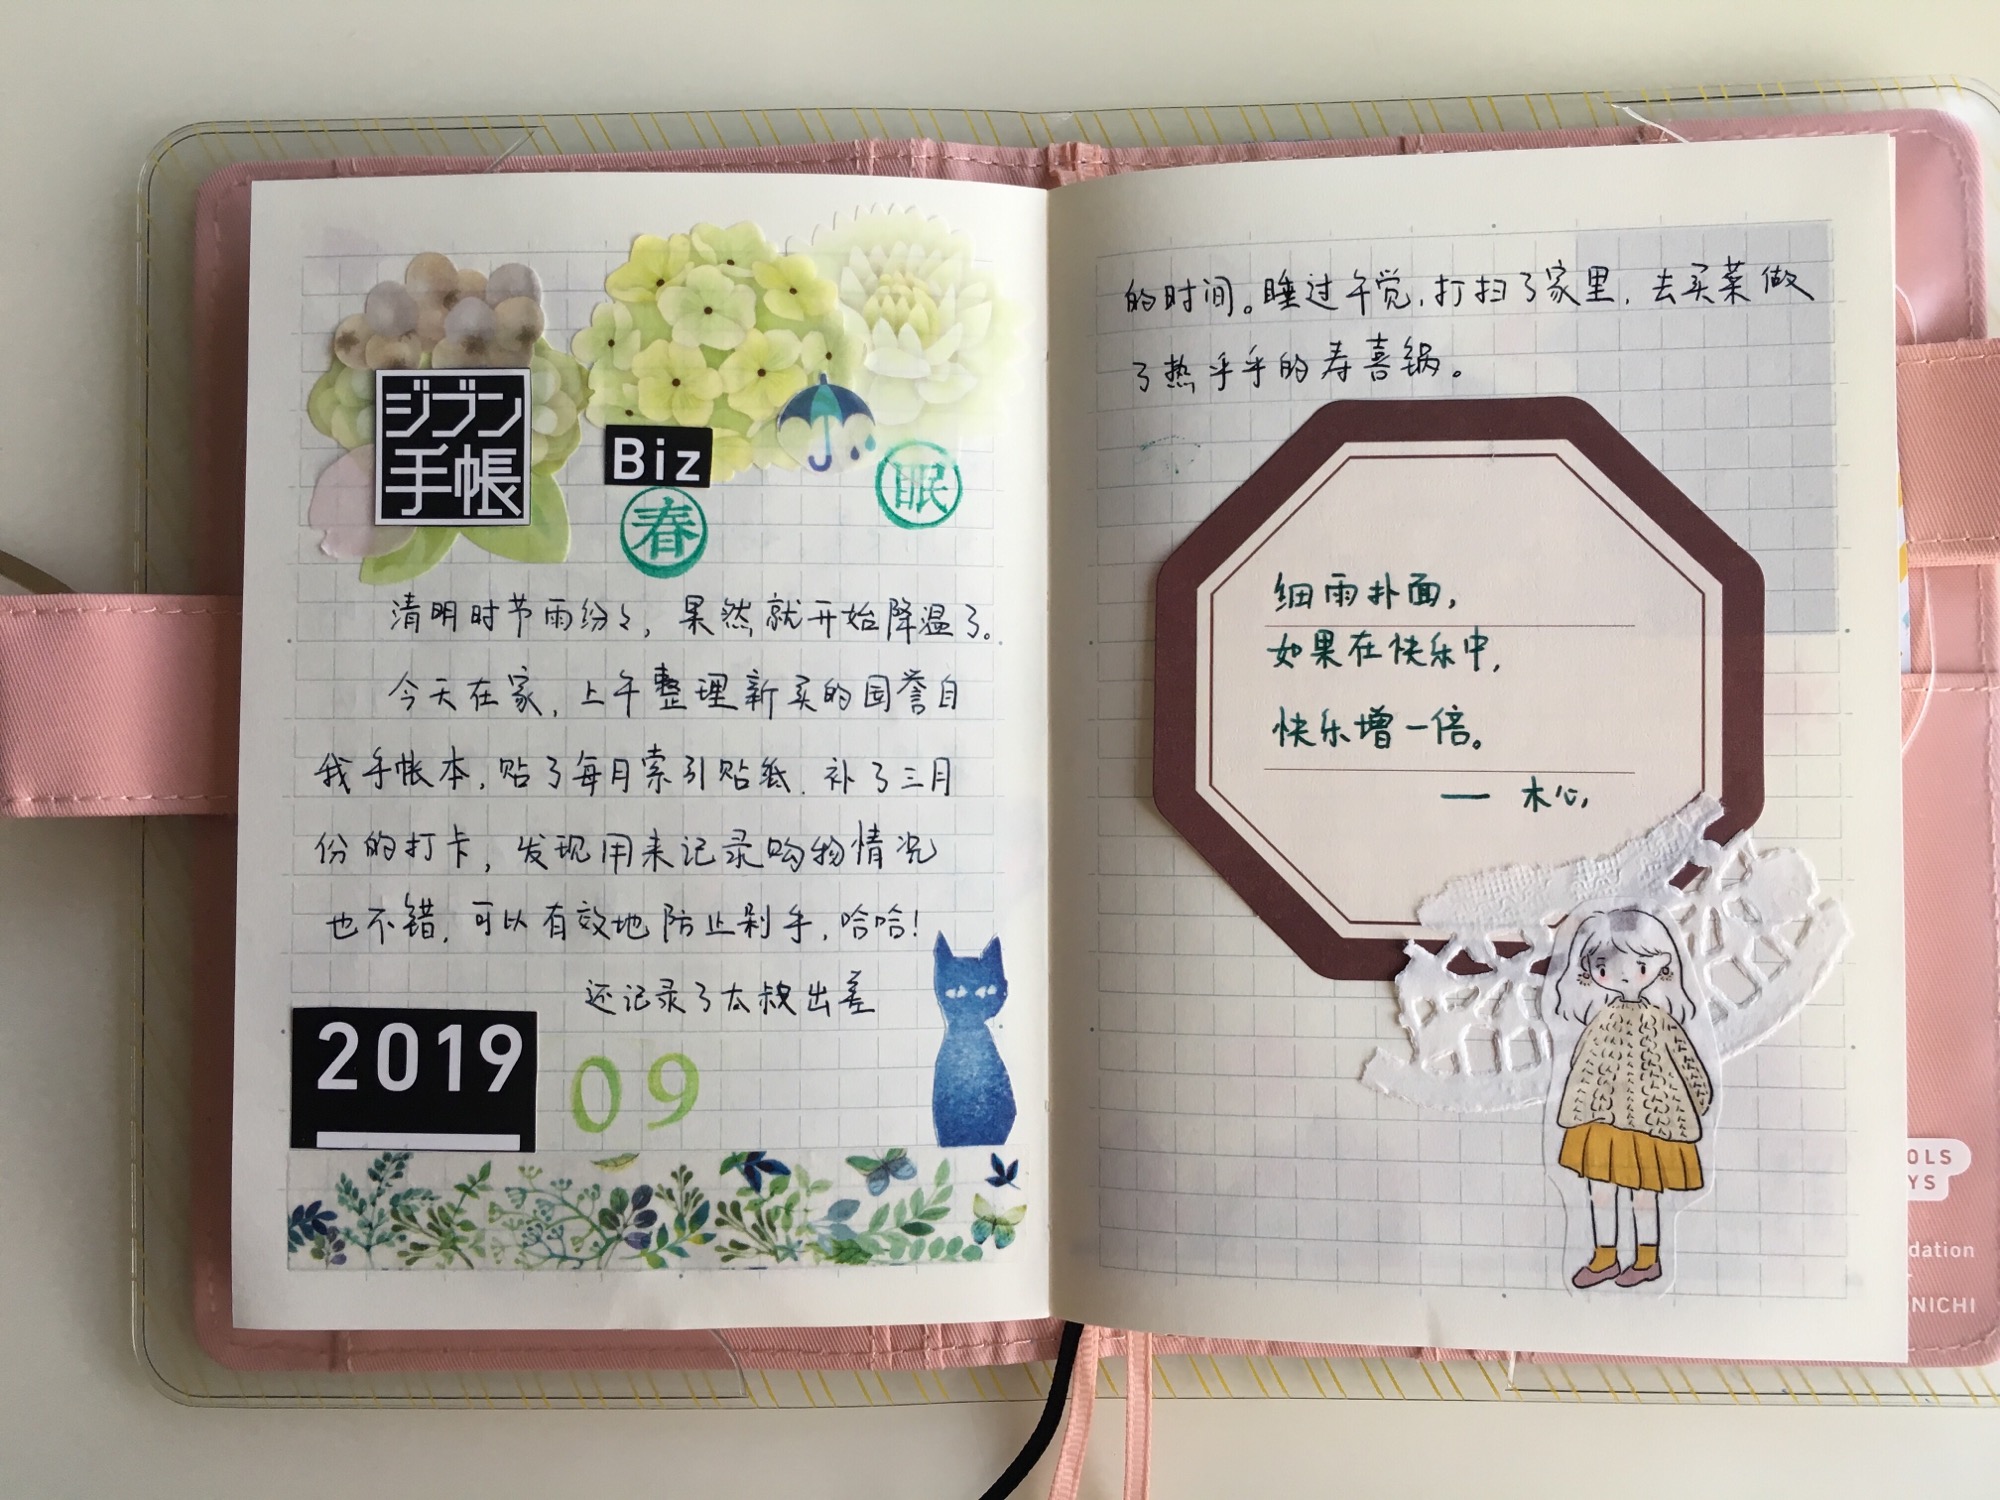 ジブン
手帳
Biz
春
眠
清明时节雨纷々，果然就开始降温了。
今天在家，上午整理新买的国誉自
我手帐本，贴了每月索引贴纸，补了三月
份的打卡，发现用来记录购物情况
也不错，可以有效地防止剁手，哈哈！
还记录了太叔出差
2019
09
的时间。睡过午觉，打扫了家里，去买菜做
了热乎乎的寿喜锅。
细雨扑面，
如果在快乐中，
快乐增一倍。
— 木心
OLS
YS
dation
NICHI